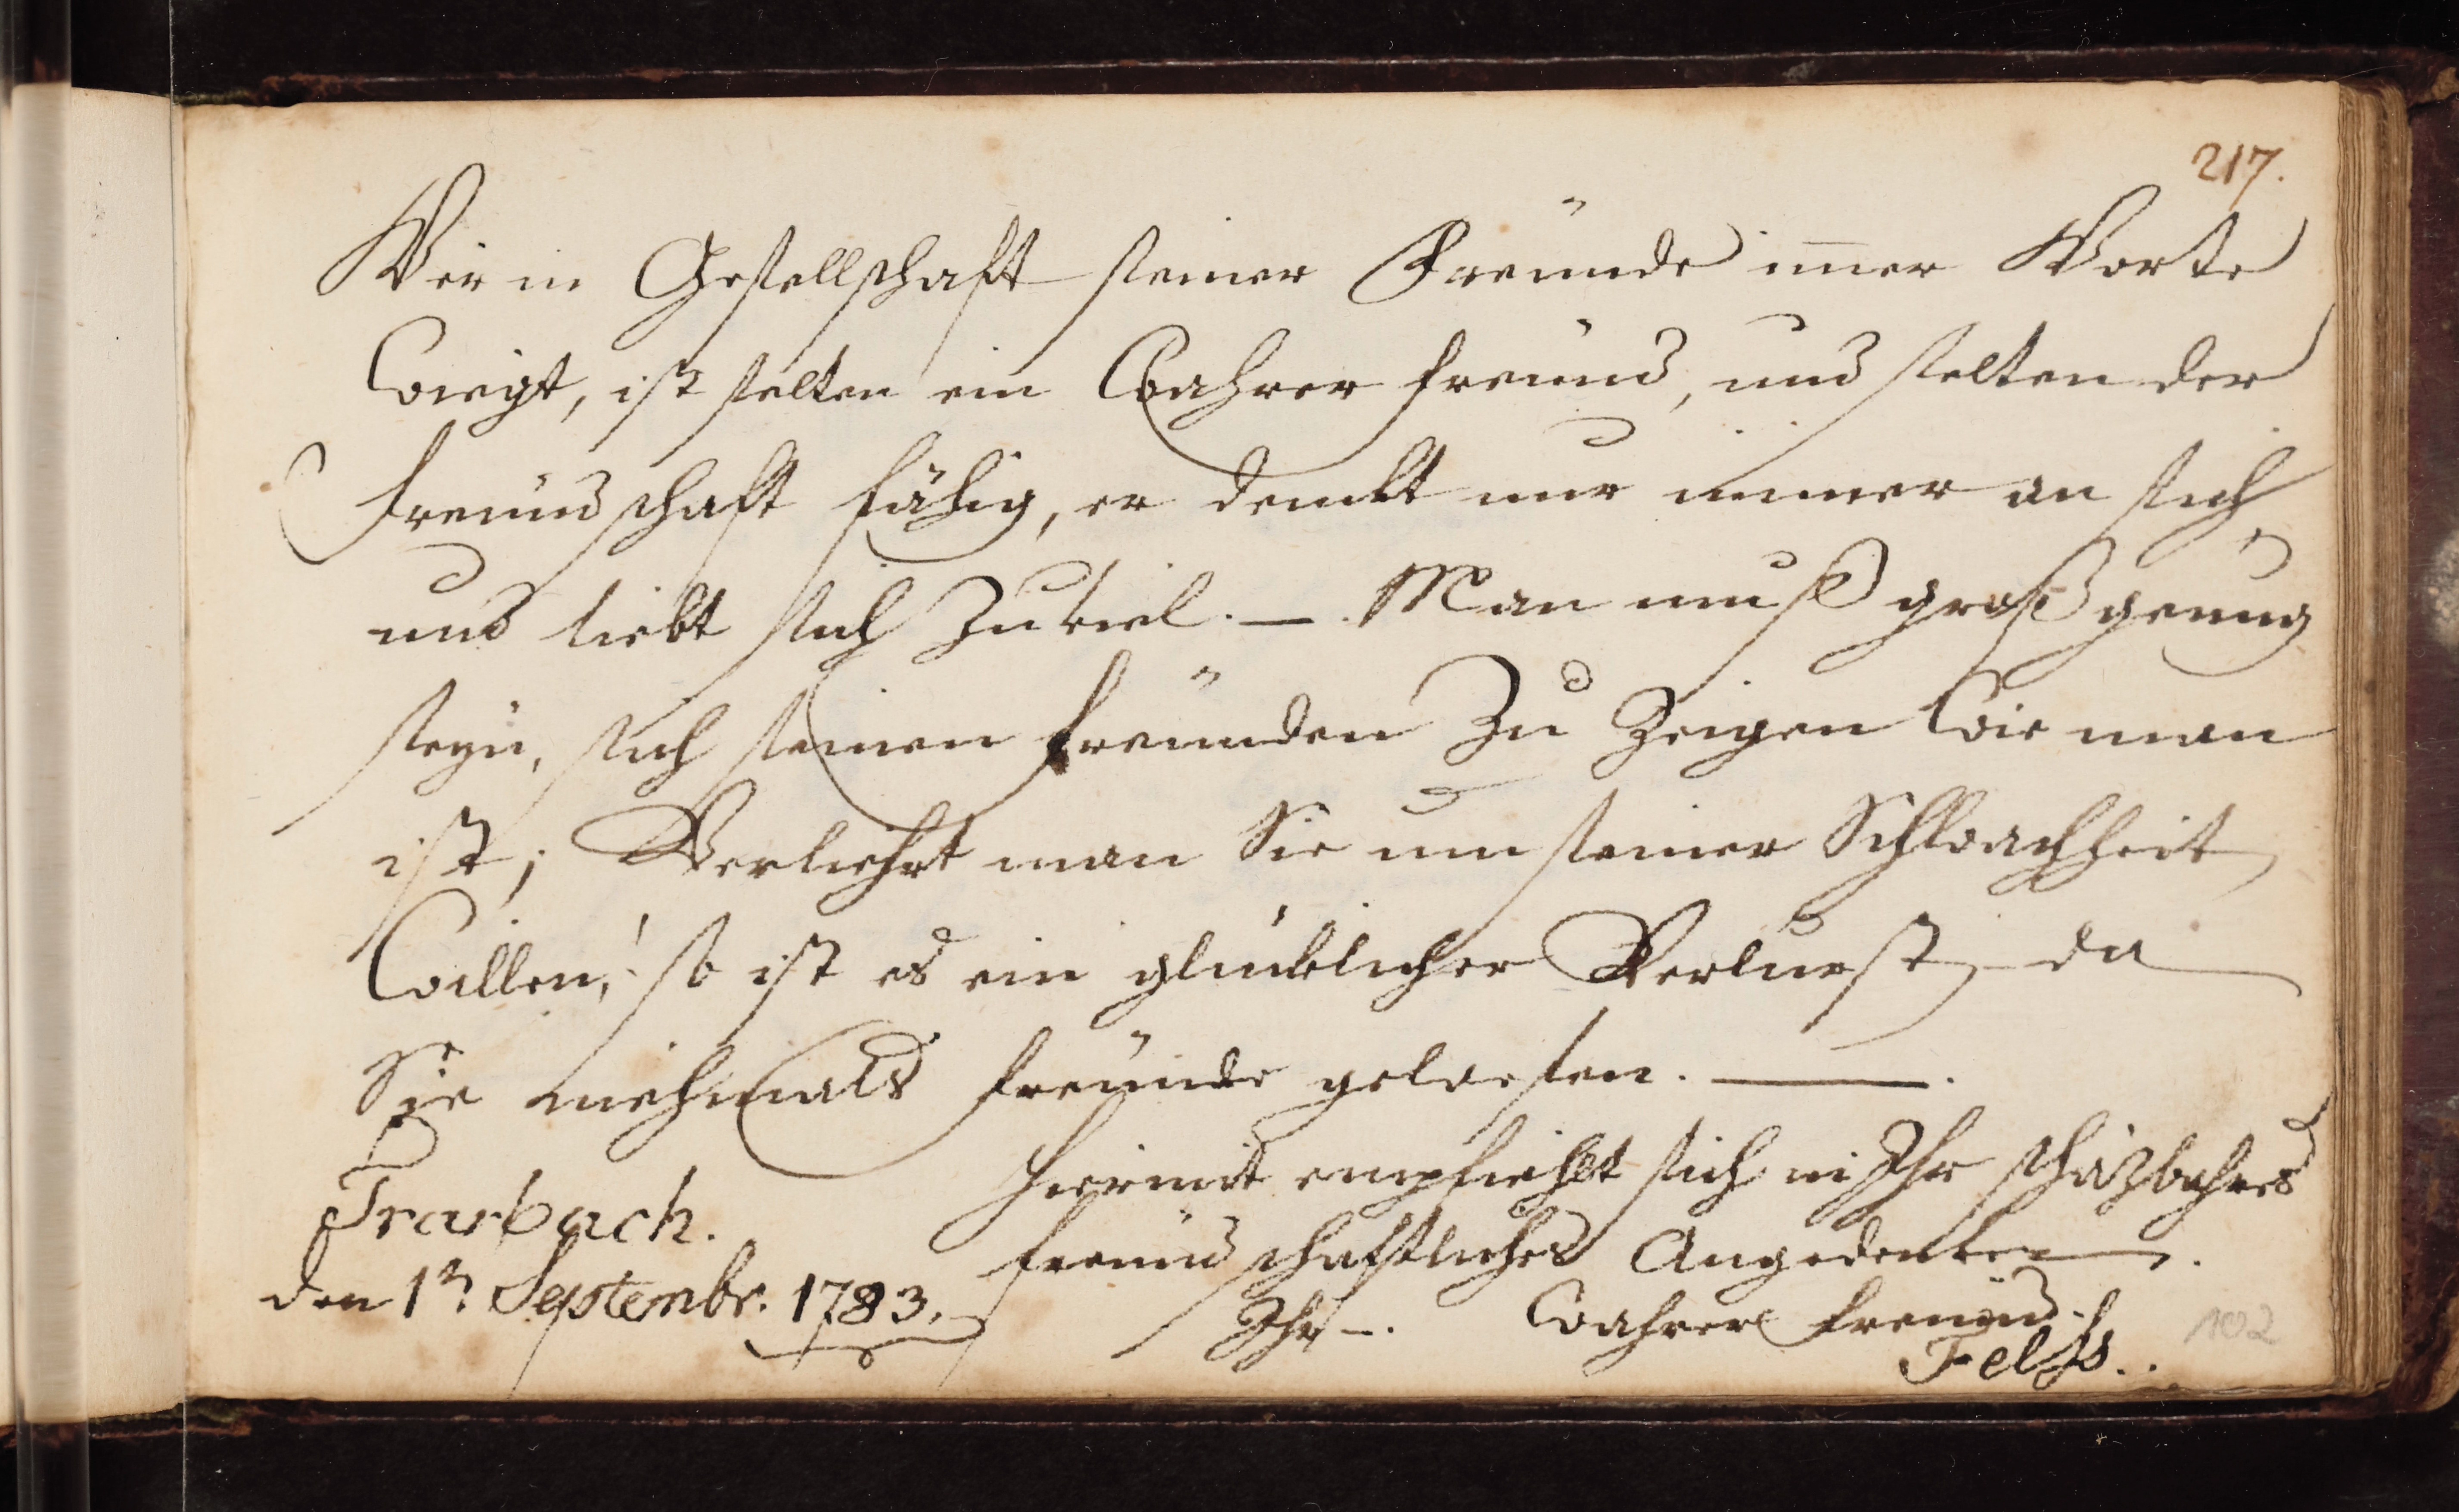 217.
Wer in Gesellschaft seiner Freünde im̄er Worte
Wiegt, ist selten ein Wahrer freünd, und selten der
freündschaft fähig, er denckt nur immer an sich
und liebt sich Zu viel. — . Man muß groß genug
seyn, sich seinen freünden Zu Zeigen Wie man
ist; Verliehrt man Sie um seiner Schwachheit
Willen, so ist es ein glücklicher Verlust, da
Sie niehmals freünde gewesen. — .
hiermit empfiehlt sich in Ihr schäzbahres
freündschaftliches Angedencken.
Trarbach.
den 1n Septembr. 1783.
Ihr — . Wahrer freünd
Felss.
102